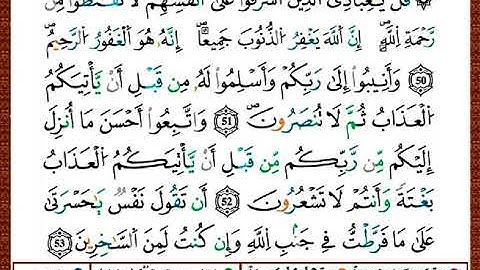 قُلْ يَـٰعِبَادِيَ ٱلَّذِينَ أَسْرَفُوا۟ عَلَىٰٓ أَنفُسِهِمْ لَا تَقْنَطُوا۟ مِن
رَّحْمَةِ ٱللَّهِ إِنَّ ٱللَّهَ يَغْفِرُ ٱلذُّنُوبَ جَمِيعًا إِنَّهُۥ هُوَ ٱلْغَفُورُ ٱلرَّحِيمُ
وَأَنِيبُوٓا۟ إِلَىٰ رَبِّكُمْ وَأَسْلِمُوا۟ لَهُۥ مِن قَبْلِ أَن يَّأْتِيَكُمُ (50)
ٱلْعَذَابُ ثُمَّ لَا تُنصَرُونَ (51) وَٱتَّبِعُوٓا۟ أَحْسَنَ مَآ أُنزِلَ
إِلَيْكُم مِّن رَّبِّكُم مِّن قَبْلِ أَن يَّأْتِيَكُمُ ٱلْعَذَابُ
بَغْتَةً وَأَنتُمْ لَا تَشْعُرُونَ (52) أَن تَقُولَ نَفْسٌ يَـٰحَسْرَتَىٰ
عَلَىٰ مَا فَرَّطتُّ فِى جَنۢبِ ٱللَّهِ وَإِن كُنتُ لَمِنَ ٱلسَّـٰخِرِينَ (53)